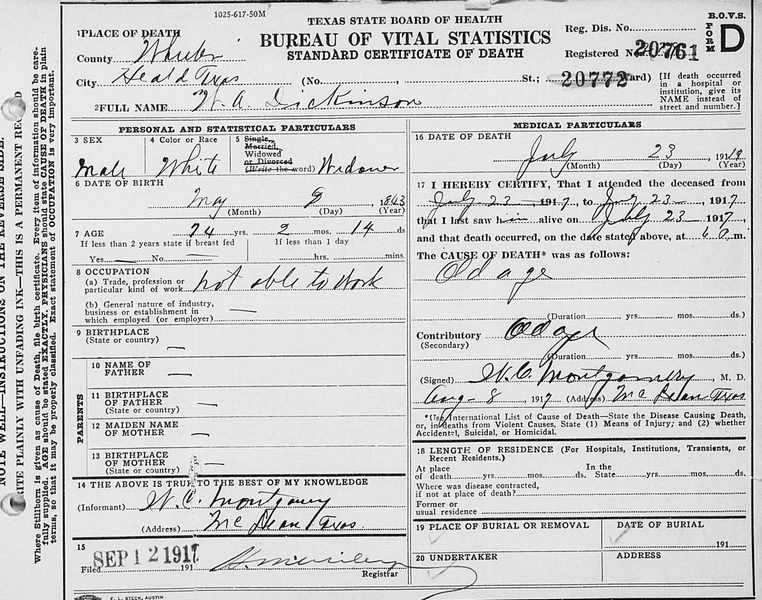 1025-617-50M
TEXAS STATE BOARD OF HEALTH
BUREAU OF VITAL STATISTICS
STANDARD CERTIFICATE OF DEATH
B.O.V.S.
FORM D
Reg. Dis. No.
Registered No. 20761
20772
1 PLACE OF DEATH
County
City Heald Texas (No. , St.; Ward)
(If death occurred in a hospital or institution, give its NAME instead of street and number.)
2 FULL NAME W. A. Dickinson
PERSONAL AND STATISTICAL PARTICULARS
3 SEX
Male
4 Color or Race
White
5 Single, Married, Widowed or Divorced (Write the word) Widower
6 DATE OF BIRTH
May 8 1843
(Month) (Day) (Year)
7 AGE 74 yrs. 2 mos. 14 ds.
If less than 2 years state if breast fed
Yes No
If less than 1 day
hrs. mins.
8 OCCUPATION
(a) Trade, profession or particular kind of work not able to work
(b) General nature of industry, business or establishment in which employed (or employer)
9 BIRTHPLACE
(State or country)
PARENTS
10 NAME OF FATHER
11 BIRTHPLACE OF FATHER
(State or country)
12 MAIDEN NAME OF MOTHER
13 BIRTHPLACE OF MOTHER
(State or country)
14 THE ABOVE IS TRUE TO THE BEST OF MY KNOWLEDGE
(Informant) W. C. Montgomery
(Address) McLean Texas
15
Filed SEP 12 1917 191
Registrar
MEDICAL PARTICULARS
16 DATE OF DEATH
July 23 1917
(Month) (Day) (Year)
17 I HEREBY CERTIFY, That I attended the deceased from
July 23 1917, to July 23 1917
that I last saw him alive on July 23 1917,
and that death occurred, on the date stated above, at 6 a m.
The CAUSE OF DEATH* was as follows:
Od age
(Duration) yrs. mos. ds.)
Contributory Od age
(Secondary)
(Duration yrs. mos. ds.)
(Signed) W. C. Montgomery, M. D.
Aug 8 1917 (Address) McLean Texas
*(Use International List of Cause of Death—State the Disease Causing Death, or, in deaths from Violent Causes, State (1) Means of Injury; and (2) whether Accidental, Suicidal, or Homicidal.
18 LENGTH OF RESIDENCE (For Hospitals, Institutions, Transients, or Recent Residents.)
At place of death yrs. mos. ds.
In the State yrs. mos. ds.
Where was disease contracted, if not at place of death?
Former or usual residence
19 PLACE OF BURIAL OR REMOVAL
DATE OF BURIAL
191
20 UNDERTAKER
ADDRESS
NOTE WELL—INSTRUCTIONS ON THE REVERSE SIDE.
WRITE PLAINLY WITH UNFADING INK—THIS IS A PERMANENT RECORD
Where Stillborn is given as cause of Death, file birth certificate. Every item of information should be carefully supplied. AGE should be stated EXACTLY, PHYSICIANS should state CAUSE OF DEATH in plain terms, so that it may be properly classified. Exact statement of OCCUPATION is very important.
STECK, AUSTIN